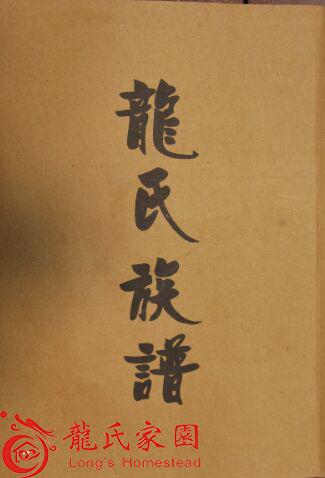 龍氏族譜
龍氏家園
Long's Homestead